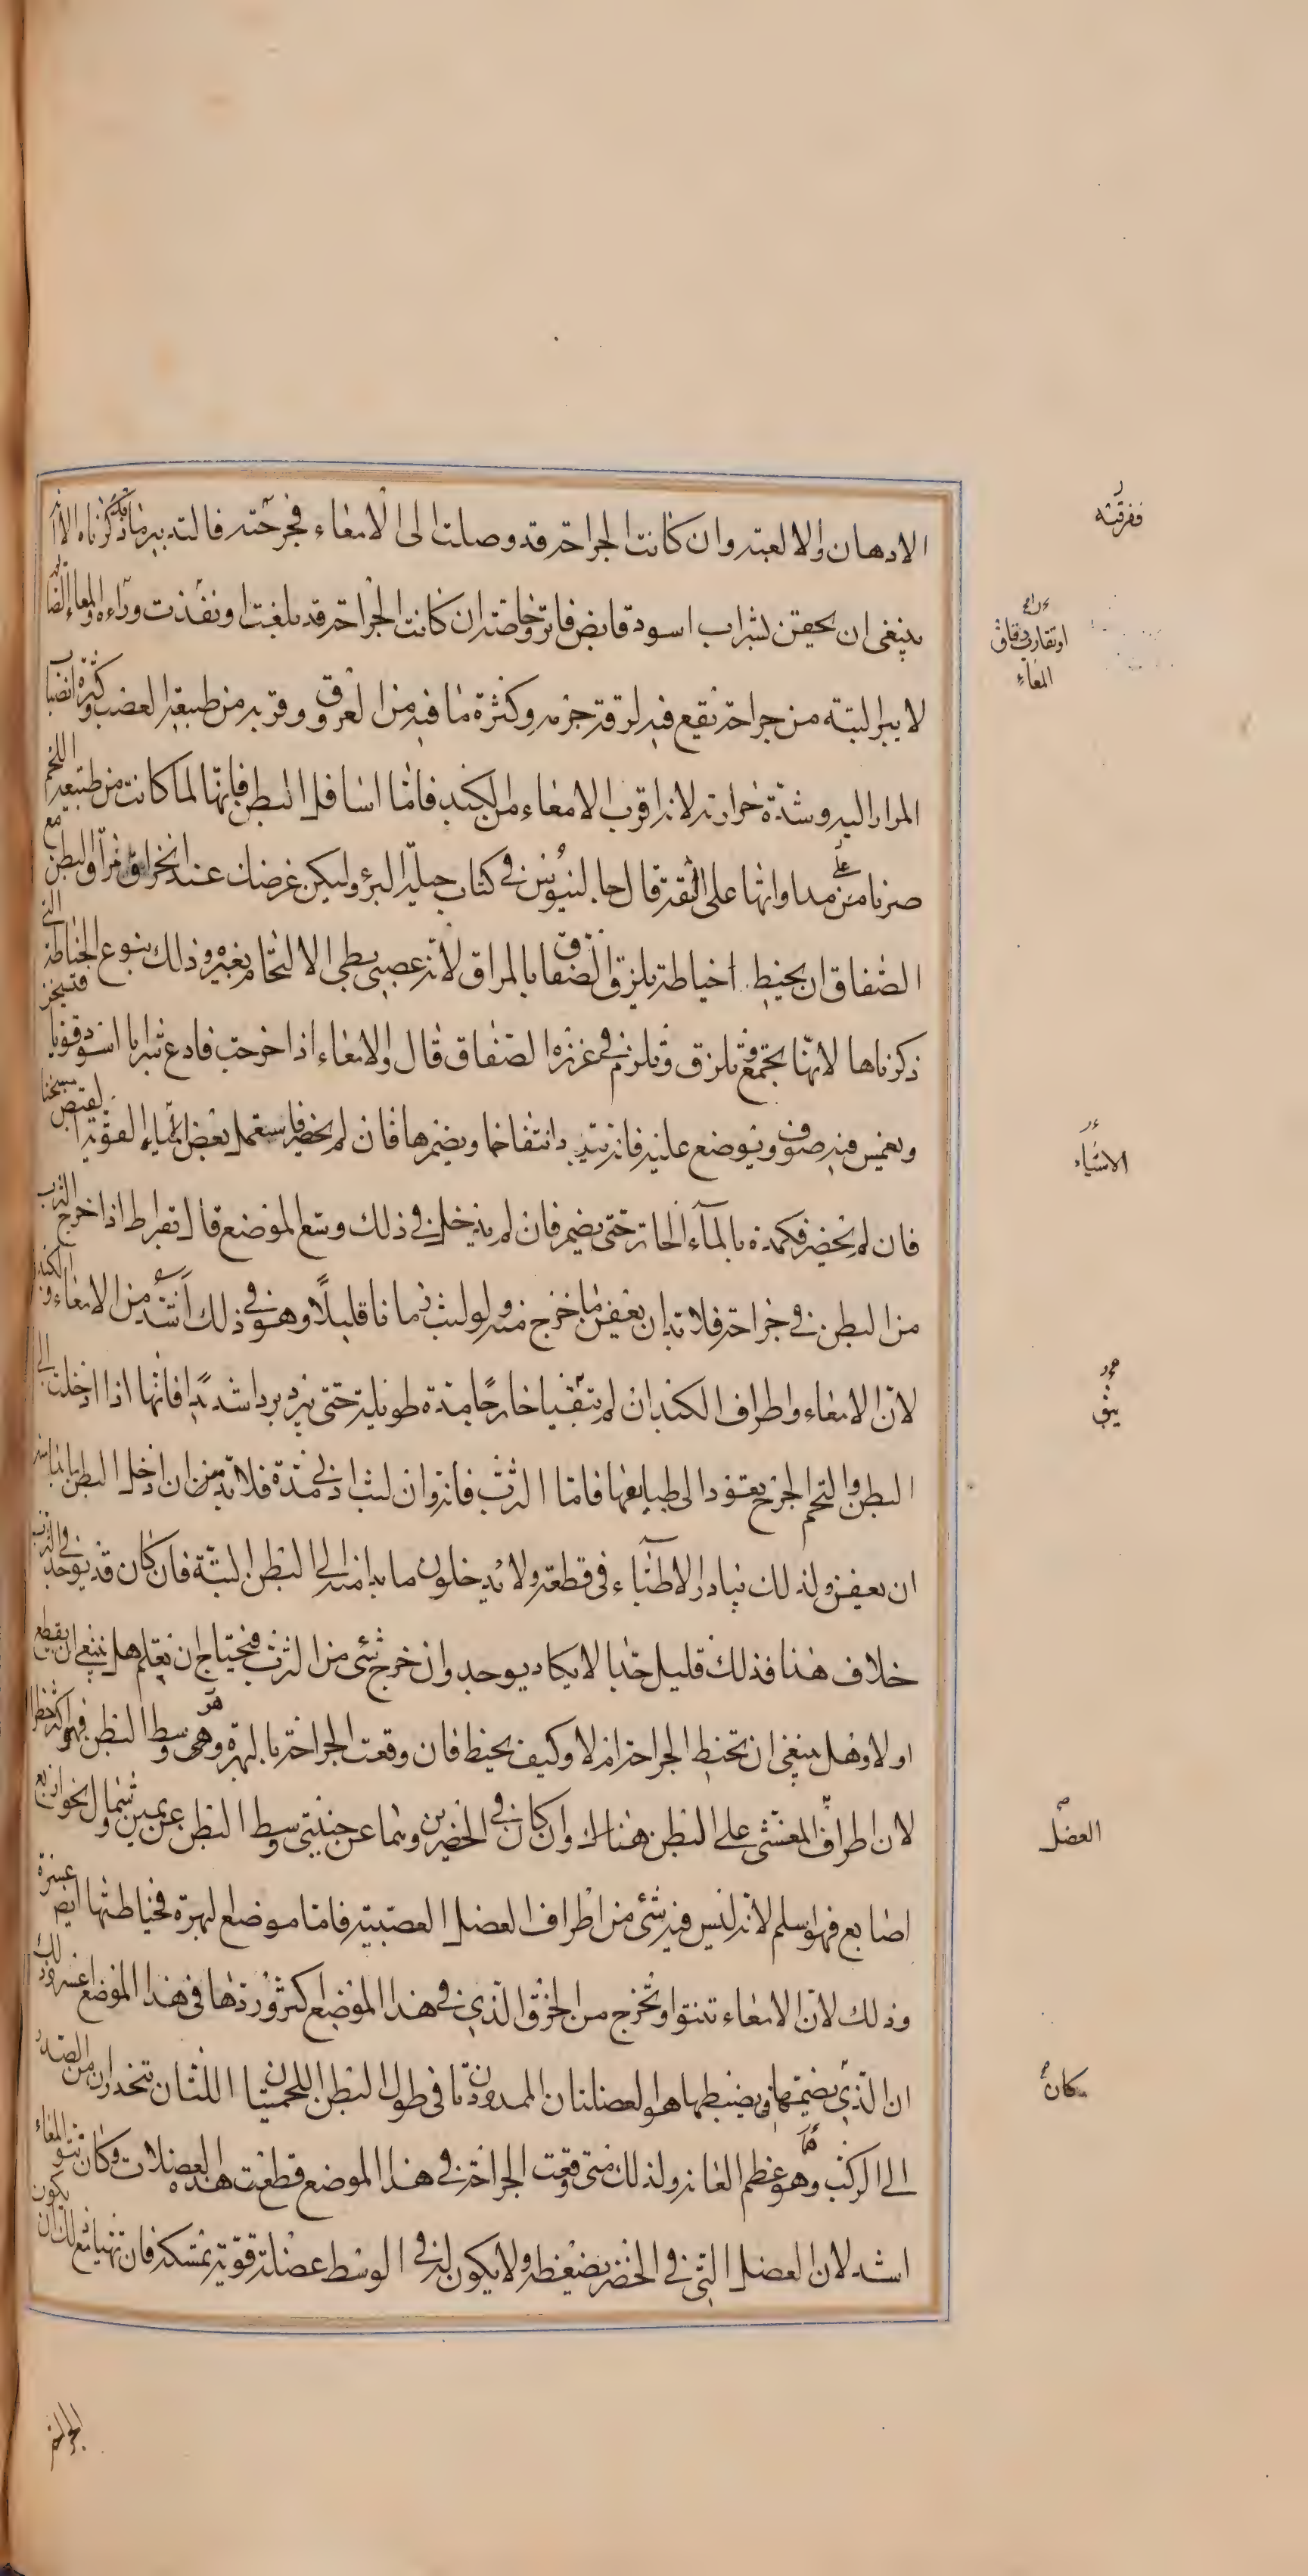 الادهان والالعبة وان كانت الجراحة قد وصلت الى الامعاء فجرحته فالتدبير ما قد ذكرناه الا انه
ينبغى ان يحقن بشراب اسود قابض فاتر وخاصة ان كانت الجراحة قد بلغت او نفذت وراءه والمعاء الصا
لا يبرا البتة من جراحة تقع فيه لرقة جرمه وكثرة ما فيه من العروق وقربه من طبيعة العصب وكثرة انصباب
المرار اليه وشدة حرارته لانه اقرب الامعاء من الكبد فاما اسافل البطن فانها لما كانت من طبيعة اللحم
صرنا من مداواتها على الثقة قال جالينوس فى كتاب حيلة البرؤ وليكن غرضك عند انخراق مراق البطن مع
الصفاق ان يخيط خياطة يلزق الصفاق بالمراق لانه عصبى بطى الالتحام بغيره وذلك بنوع الخياطة التى
ذكرناها لانها تجمع وتلزق وتلزم فى غرزه الصفاق قال والامعاء اذا خرجت فادع شرابا اسود قويا فتسخن
ويغمس فيه صوف ويوضع عليه فانه يبدد انتفاخها ويضمرها فان لم يحضر فاستعمل بعض المياه القوية القبض مسخنا
فان لم يحضر فكمده بالماء الحار حتى يضمر فان لم يدخل فى ذلك وسع الموضع قال بقراط اذا خرج الثرب
من البطن فى جراحة فلا بد ان يعفن ما خرج منه ولو لبث زمانا قليلا وهو فى ذلك اشد من الامعاء والكبد
لان الامعاء واطراف الكبد ان لم تبقيا خارجا مدة طويلة حتى تبرد بردا شديدا فانها اذا ادخلت الى
البطن والتحم الجرح يعود الى طبايعها فاما الثرب فانه وان لبث ادنى مدة فلا بد من ان ادخل البطن ما بدا منه
ان يعفن ولذلك يبادر الاطباء فى قطعه ولا يدخلون ما بدا منه الى البطن البتة فان كان قد يوجد فى الثرب
خلاف هذا فذلك قليل جدا لا يكاد يوجد وان خرج شئ من الثرب فتحتاج ان تعلم هل ينبغى ان يقطع
او لا وهل ينبغى ان تخيط الجراحة ام لا وكيف يخيط فان وقعت الجراحة بالبهرة وهى وسط البطن فهو اكثر خطرا
لان اطراف المغشى على البطن هناك وان كان فى الخصرين وهما عن جنبتى وسط البطن عن يمين وشمال نحو اربع
اصابع فهو اسلم لانه ليس فيه شئ من اطراف العضل العصبية فاما موضع البهرة فخياطتها ايضا عسرة
وذلك لان الامعاء تنتوا وتخرج من الخرق الذى فى هذا الموضع اكثر وردها فى هذا الموضع اعسر وذلك
ان الذى يضمها ويضبطها هو العضلتان الممدودتان فى طول البطن اللحميتان اللتان تنحدران من الصدر
الى الركب وهو عظم العانة ولذلك متى وقعت الجراحة فى هذا الموضع قطعت هذه العضلات وكان نتو المعاء
اشد لان العضل التى فى الخصر يضغطه ولا يكون له فى الوسط عضلة قوية تمسكه فان تهيا مع ذلك ان يكون
ففرقته
او تقارب دقاق
المعاء
الاشياء
يبق
العضل
كان
الجراحة